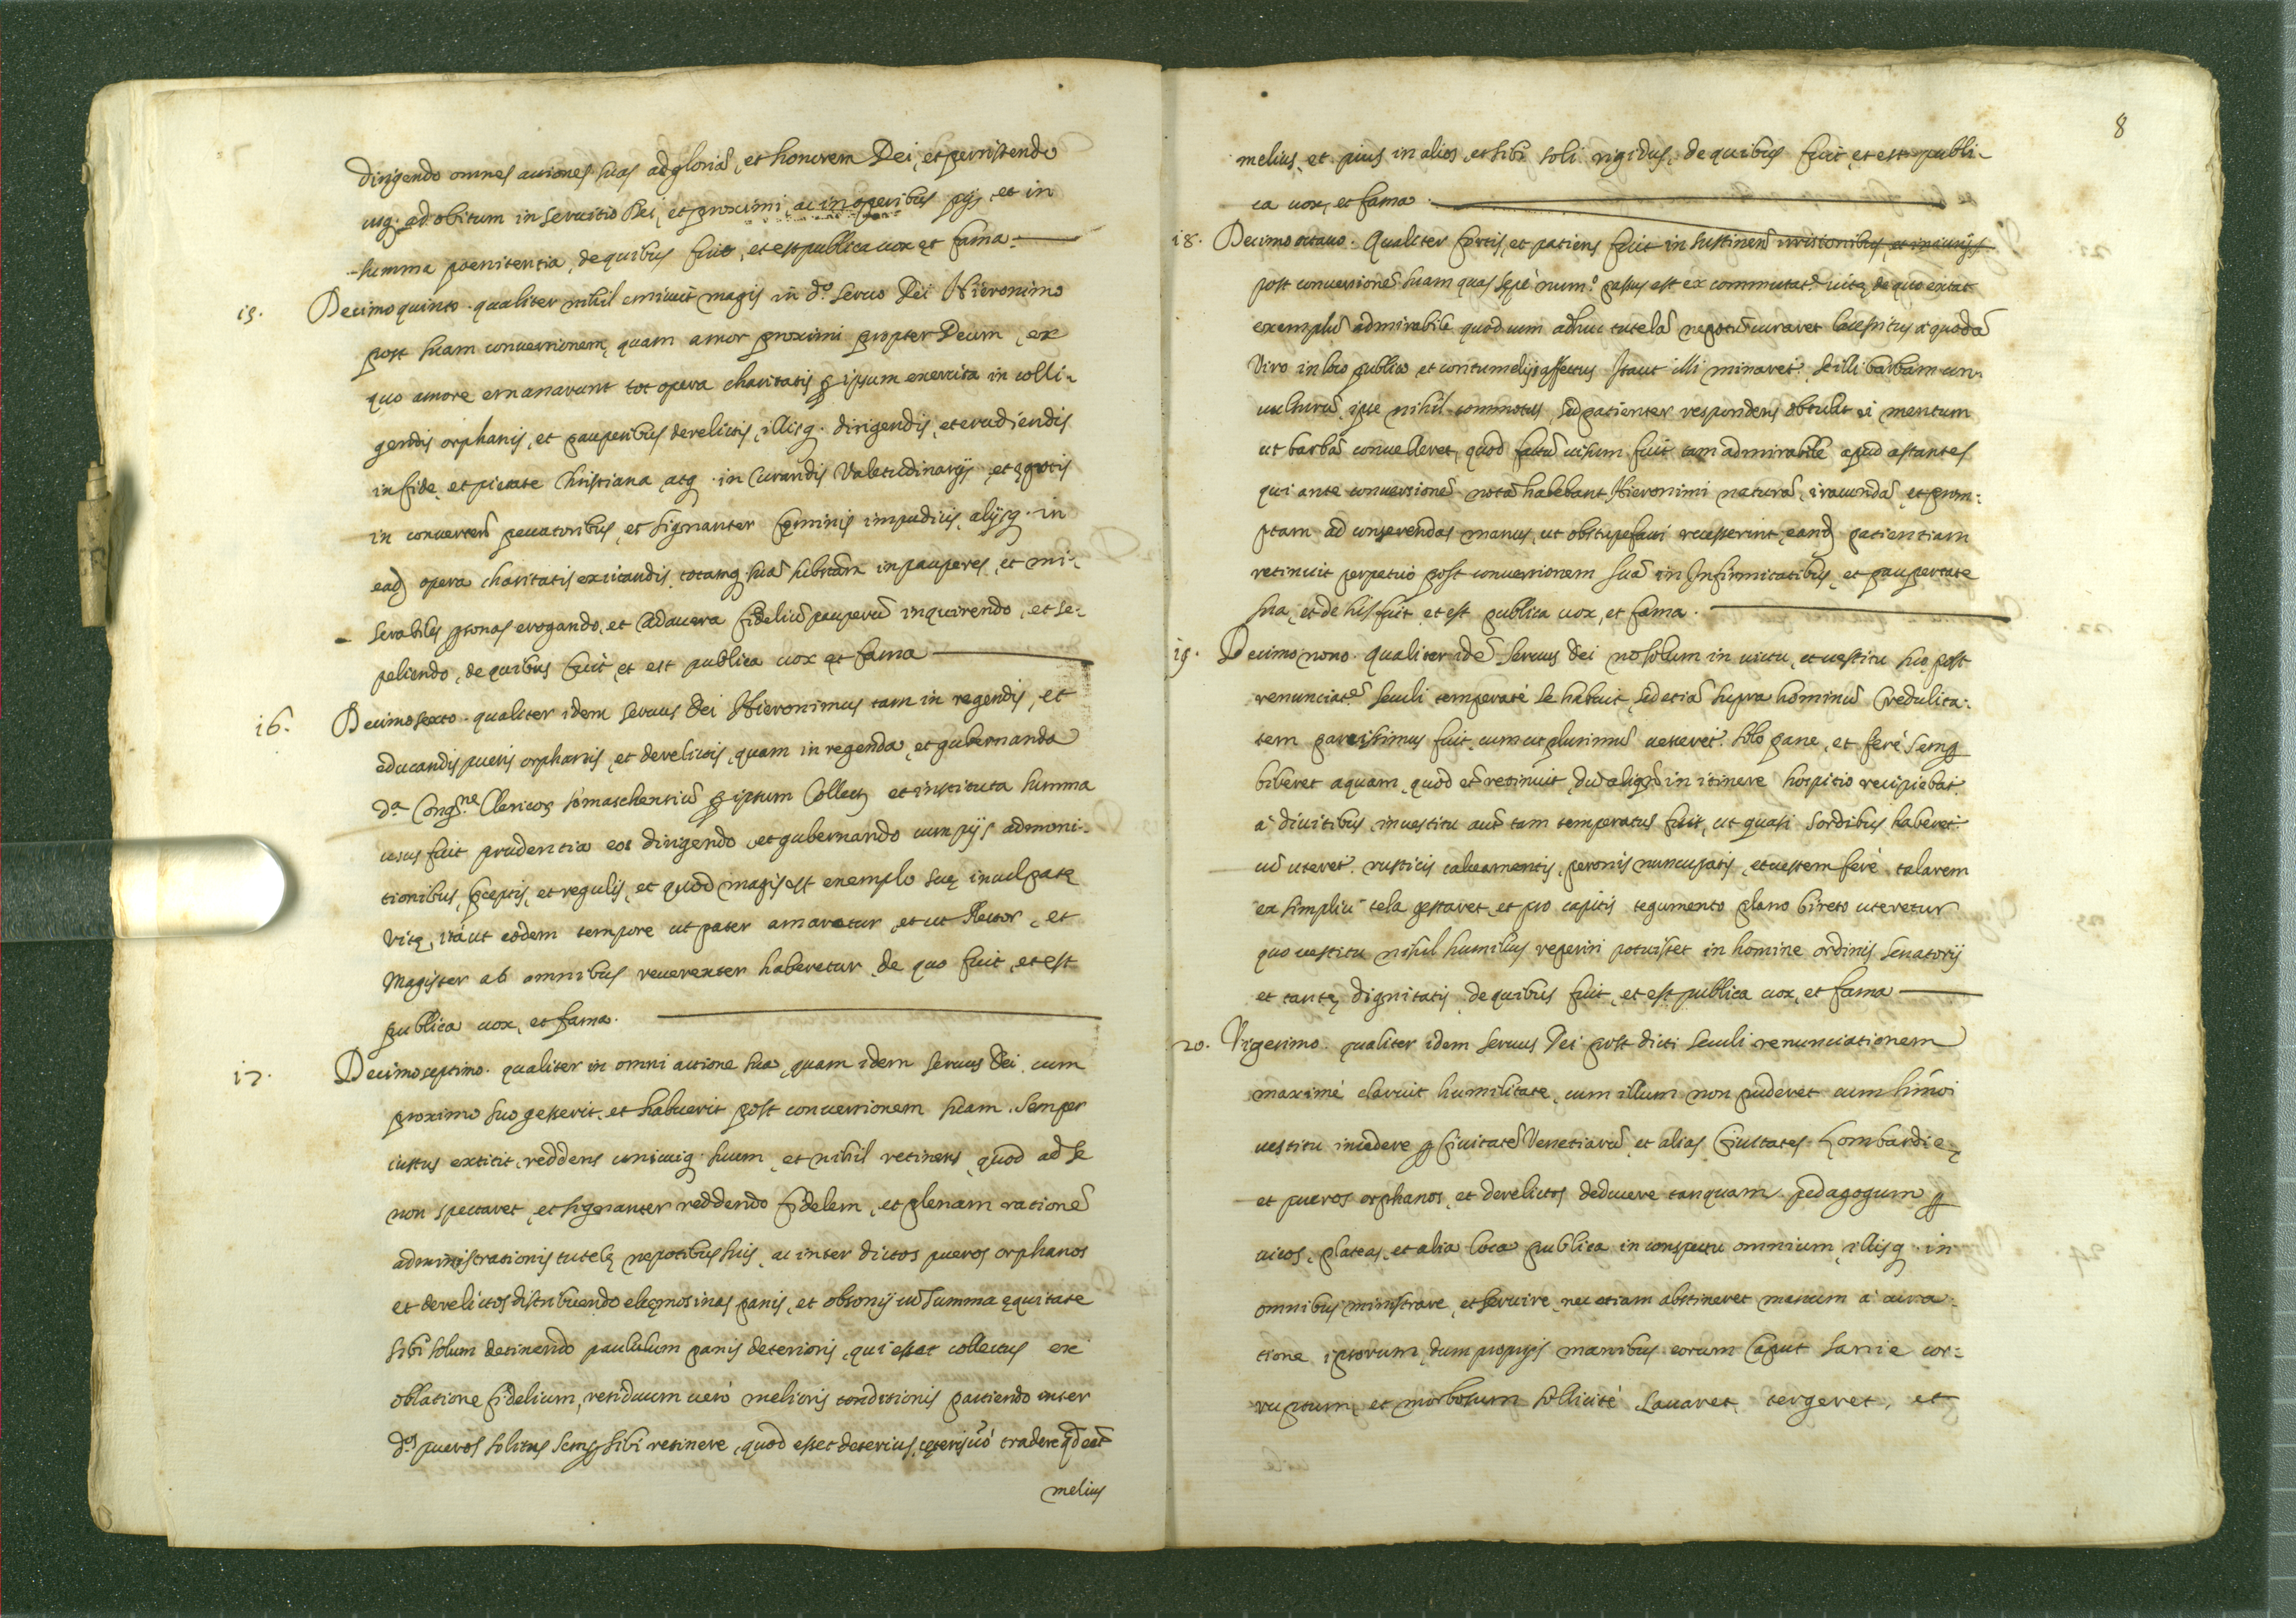 dirigendo omnes actiones suas ad gloriã, et honorem Dei, et persistendo
usq. ad obitum in servitio Dei, et proximi, ac in operibus pijs, et in
summa poenitentia, de quibus fuit, et est publica uox et fama.
15. Decimoquinto. qualiter nihil enituit magis in d.º seruo Dei Hieronimo
post suam conuersionem, quam amor proximi propter Deum, ex
quo amore emanarunt tot opera charitatis ꝑ ipsum exercita in colli-
gendis orphanis, et pauperibus derelictis, illisq. dirigendis, et erudiendis
in fide, et pietate Christiana, atq. in Curandis Valetudinarijs, et ęgrotis
in conuerten̄ peccatoribus, et signanter fęminis impudicis, alijsq. in
ead) opera charitatis excitandis, totamq. suã subtãm in pauperes, et mi-
serabiles ꝑsonas erogando, et Cadauera fideliũ pauperũ inquirendo, et se-
peliendo, de quibus fuit, et est publica uox et fama
16. Decimosexto. qualiter idem seruus Dei Hieronimus tam in regendis, et
educandis pueris orphanis, et derelictis, quam in regenda, et gubernanda
d.ª Congr.ne Clericoꝝ somaschensiũ ꝑ ipsum Collecta et instituta summa
usus fuit prudentia eos dirigendo, et gubernando cum pijs admoni-
tionibus, pceptis, et regulis, et quod magis est exemplo suę inculpatę
Vitę, ità ut eodem tempore ut pater amaretur, et ut Rector, et
Magister ab omnibus reuerenter haberetur, de quo fuit, et est
publica uox, et fama.
17. Decimoseptimo. qualiter in omni actione sua, quam idem seruus Dei cum
proximo suo gesserit, et habuerit post conuersionem suam, semper
iustus extitit, reddens unicuiq. suum, et nihil retinens, quod ad se
non spectaret, et signanter reddendo fidelem, et plenam rationẽ
administrationis tutelę nepotibus suis, ac inter dictos pueros orphanos
et derelictos distribuendo elęmosinas panis, et obsonij cũ summa ęquitate
sibi solum detinendo paululum panis deterioris, qui esset collectus ex
oblatione fidelium, residuum uerò melioris conditionis partiendo inter
d.os pueros solitus semꝑ sibi retinere, quod esset deterius, cęteris uò tradere qd erat
melius
8
melius, et pius in alios, et sibi soli rigidus, de quibus fuit, et est publi-
ca uox, et fama.
18. Decimo octauo. Qualiter fortis, et patiens fuit in sustinen̄ irrisionibus, et iniurijs
post conuersionẽ suam quas sępè num.º passus est ex commutat.e uitę, de quo extat
exemplũ admirabile quod cum adhuc tutelã nepotũ curaret lacessitus à quodã
Viro in loco publico, et contumelijs affectus ita ut illi minaret. se illi barbam con-
uulsurũ, ipse nihil commotus, sed patienter respondens obtulit ei mentum
ut barbã conuelleret, quod factũ uisum fuit tam admirabile apud astantes
qui ante conuersionẽ notã habebant Hieronimi naturã, iracundã, et prom-
ptam ad conserendas manus, ut obstupefacti recesserint, eand) patientiam
retinuit perpetuò post conuersionem suã in Infirmitatibus, et paupertate
sua, et de his fuit, et est publica uox, et fama.
19. Decimo nono. Qualiter idẽ seruus Dei nõ solum in uictu, et uestitu suo post
renunciat.ẽ seculi temperatè se habuit, sed etiã supra hominũ credulita-
tem parcissimus fuit, cum ut plurimũ uesceret. solo pane, et ferè semꝑ
biberet aquam, quod etẽ retinuit, dũ aliqñ in itinere hospitio recipiebat.
à diuitibus, in uestitu autẽ tam temperatus fuit, ut quasi sordibus haberet.
cũ uteret. rusticis calceamentis, peronis nuncupatis, et uestem ferè talarem
ex simplici tela gestaret, et pro capitis tegumento plano bireto uteretur
quo uestitu nihil humilius reperiri potuisset in homine ordinis senatorij
et tantę dignitatis, de quibus fuit, et est publica uox, et fama
20. Vigesimo. qualiter idem seruus Dei post dicti seculi renunciationem
maximè claruit humilitate, cum illum non puderet cum hm̄oi
uestitu incedere ꝑ Ciuitatẽ Venetiarũ, et alias Ciuitates Lombardię
et pueros orphanos, et derelictos deducere tanquam pedagogum ꝑ
uicos, plateas, et alia loca publica in conspectu omnium, illisq. in
omnibus ministrare, et seruire, nec etiam abstineret manum à cura-
tione ipsorum, dum proprijs manibus eorum Caput sanie cor-
ruptum, et morbosum sollicitè lauaret, tergeret, et